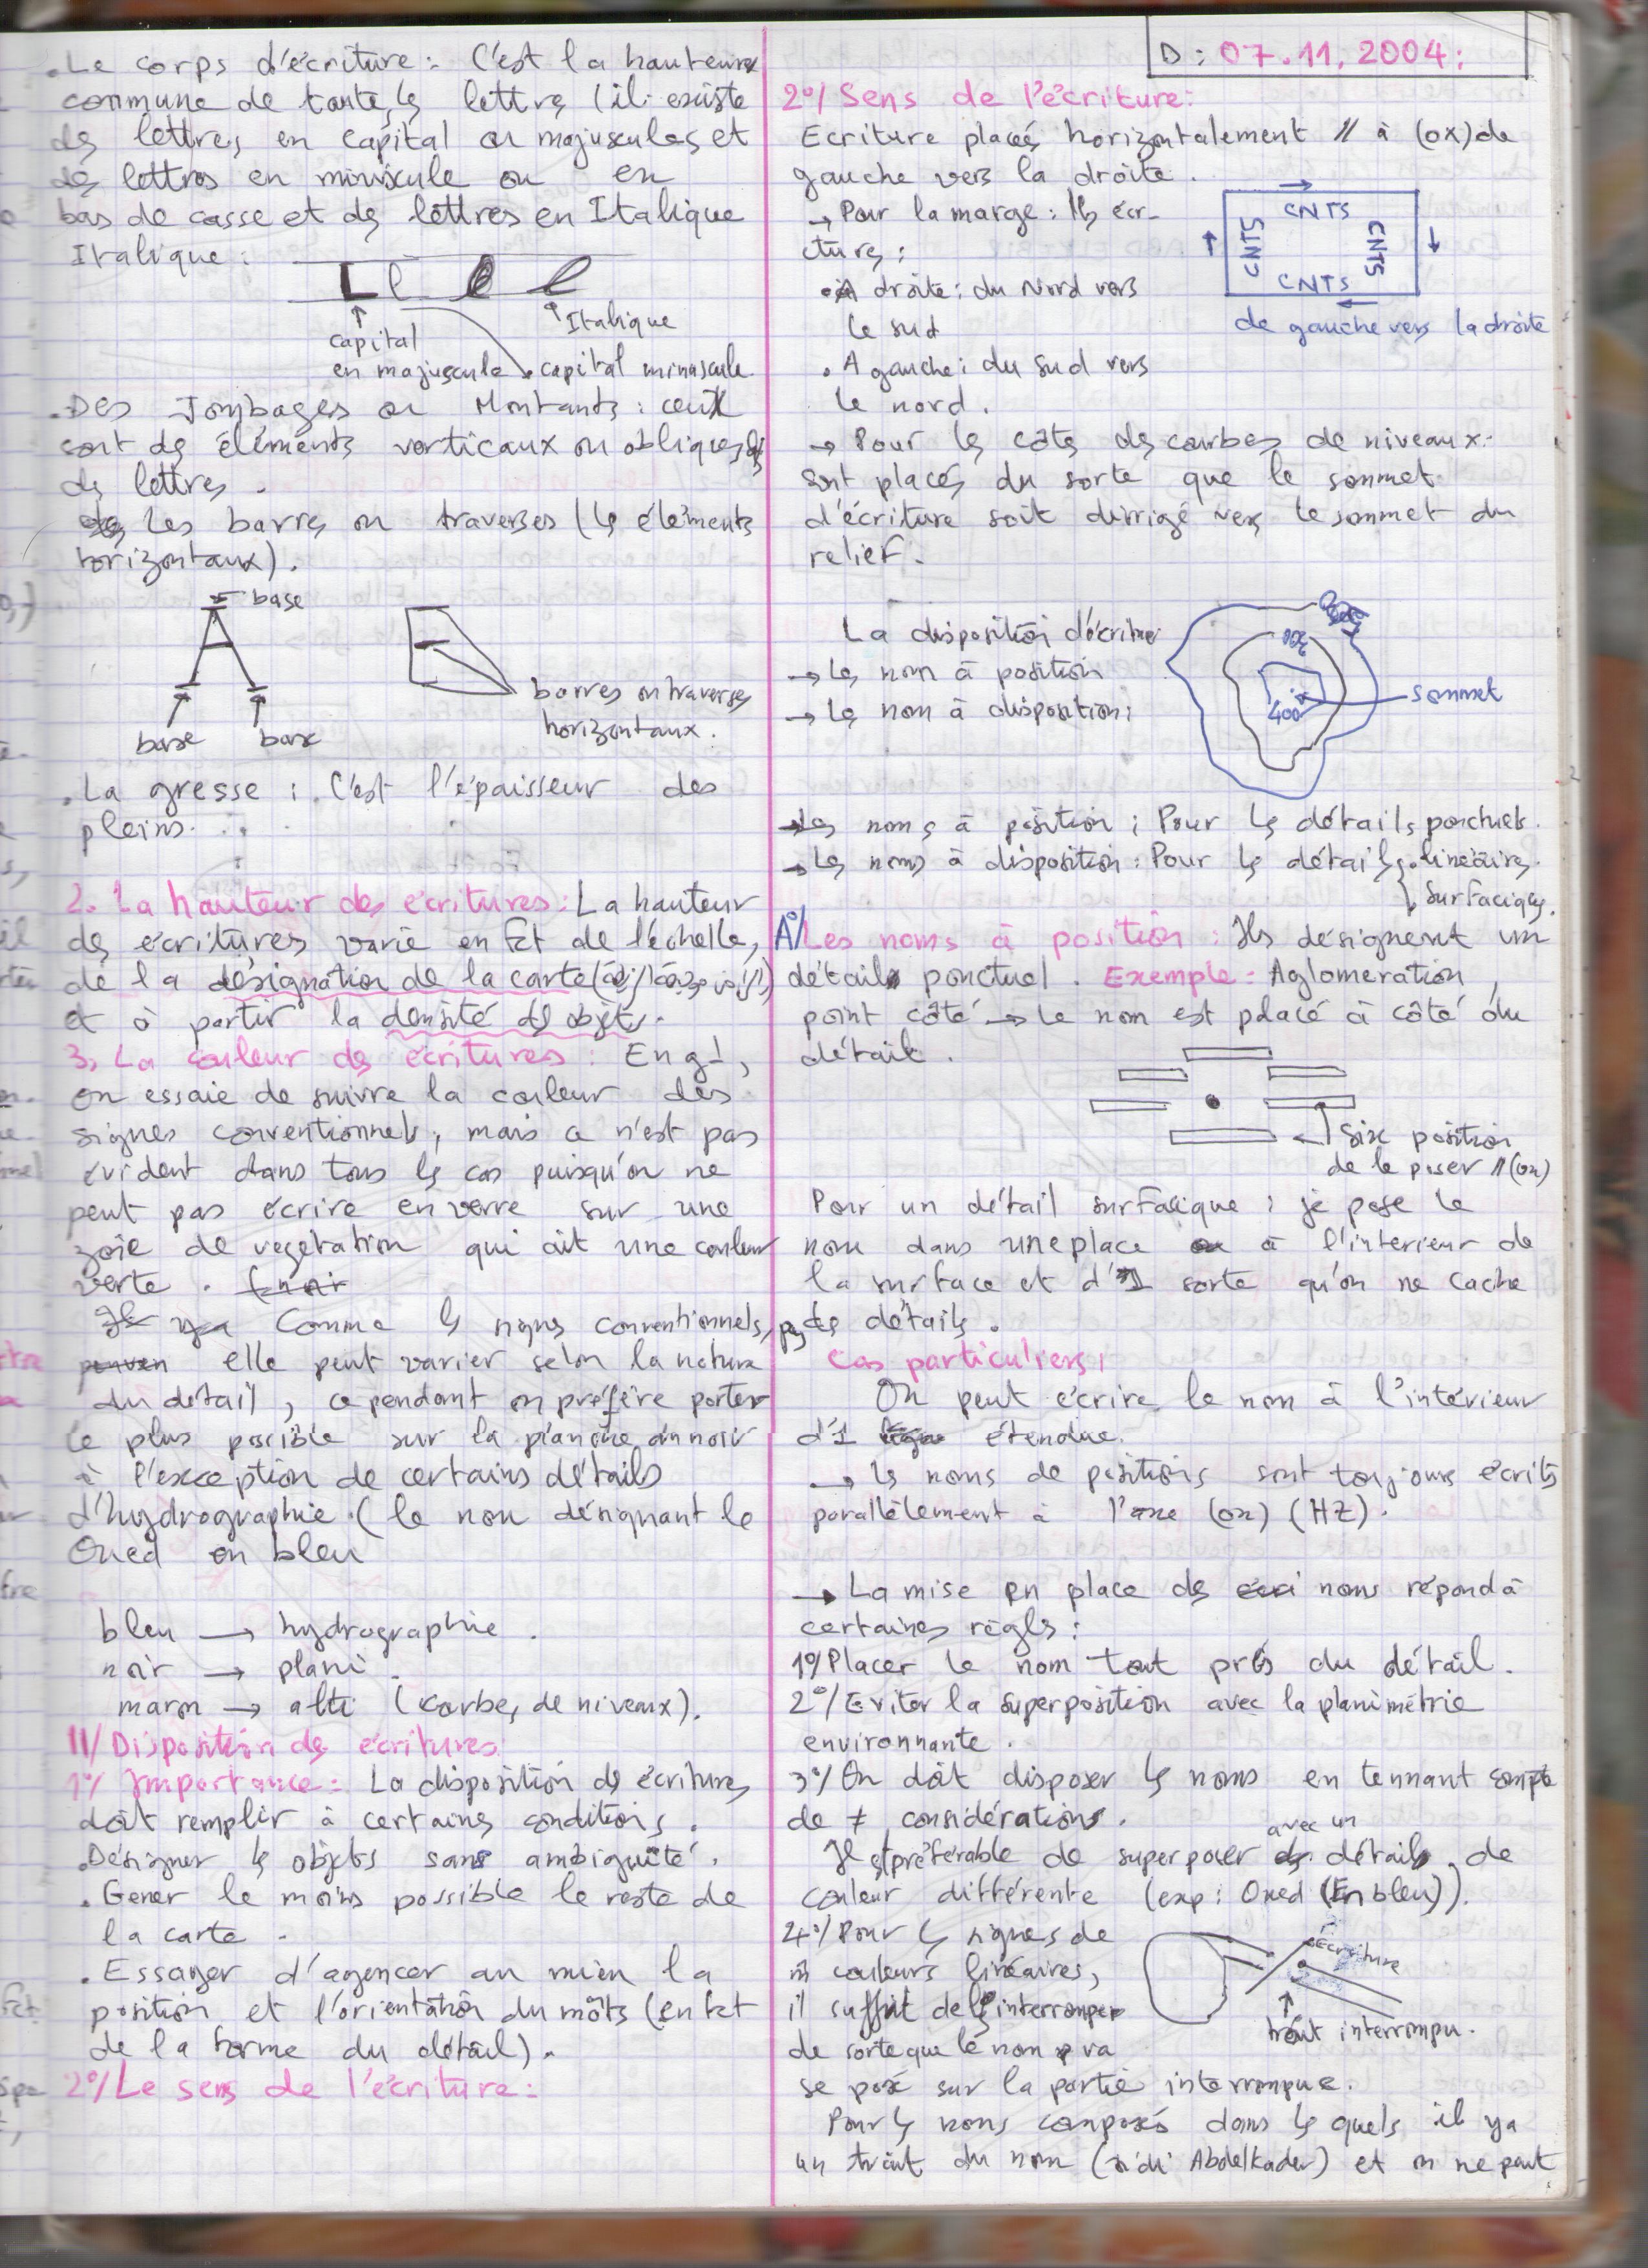 . Le corps d'écriture : C'est la hauteur
commune de toute les lettres (il existe
des lettres en capital ou majuscules et
des lettres en miniscule ou en
bas de casse et des lettres en Italique
Italique :
L l l l
capital
en majuscule
Italique
capital minuscule
. Des Jambages ou Montants : ceux
sont des éléments verticaux ou obliques
des lettres .
Les barres ou traverses (les éléments
horizontaux).
base
A
base base
barres ou traverses
horizontaux .
. La gresse : C'est l'épaisseur des
pleins.
2. La hauteur des écritures : La hauteur
des écritures varie en fct de l'échelle,
de la désignation de la carte
et à partir la densité des objets.
3. La couleur des écritures : En gl,
on essaie de suivre la couleur des
signes conventionnels, mais ce n'est pas
évident dans tous les cas puisqu'on ne
peut pas écrire en verre sur une
zoie de vegetation qui ait une couleur
verte .
Comme les signes conventionnels,
elle peut varier selon la nature
du détail, cependant on préfère porter
le plus possible sur la planche du noir
à l'exception de certains détails
d'hydrographie (le nom désignant le
Oued en bleu
bleu → hydrographie .
noir → plani .
maron → alti (corbes de niveaux).
II/ Disposition des écritures
1°/ Importance : La disposition des écritures
doit remplir à certains conditions .
. Désigner les objets sans ambiguité .
. Gener le moins possible le reste de
la carte .
. Essayer d'agencer au mien la
position et l'orientation du mots (en fct
de la forme du détail).
2°/ Le sens de l'écriture :
D : 07.11.2004 :
2°/ Sens de l'écriture :
Ecriture placés horizontalement // à (ox) de
gauche vers la droite .
→ Pour la marge : les écr-
itures :
. A droite : du Nord vers
le sud
. A gauche : du Sud vers
le nord .
CNTS
CNTS
CNTS
CNTS
de gauche vers la droite
→ Pour les côtes des courbes de niveaux :
sont placés du sorte que le sommet
d'écriture soit dirrigé vers le sommet du
relief .
La disposition d'écriture
→ Les nom à position
→ Les nom à disposition :
400
sommet
→ Les noms à position : Pour les détails ponctuels.
→ Les noms à disposition : Pour les détails . linéaires.
surfaciques.
A°/ Les noms à position : Ils désignent un
détail ponctuel . Exemple : Aglomeration ,
point côté → Le nom est placé à côté du
détail .
Six position
de le poser // (ox)
Pour un détail surfacique : je pose le
nom dans une place à l'interieur de
la surface et d'1 sorte qu'on ne cache
pas les détails .
Cas particuliers :
On peut écrire le nom à l'intérieur
d'1 étendue.
→ les noms de positions sont toujours écrits
parallèlement à l'axe (ox) (HZ).
→ La mise en place des noms répond à
certaines règls :
1°/ Placer le nom tout près du détail .
2°/ Eviter la superposition avec la planimétrie
environnante .
3°/ On doit disposer les noms en tennant compte
de ≠ considérations .
Il est préférable de superposer avec un détail de
couleur différente (exp : Oued (En bleu)).
4°/ Pour les signes de
m̂ couleurs linéaires,
il suffit de les interromper
de sorte que le nom va
se posé sur la partie interrompue.
écriture
trait interrompu .
Pour les noms composés dans les quels il ya
un trait du nom (sidi Abdelkader) et on ne peut